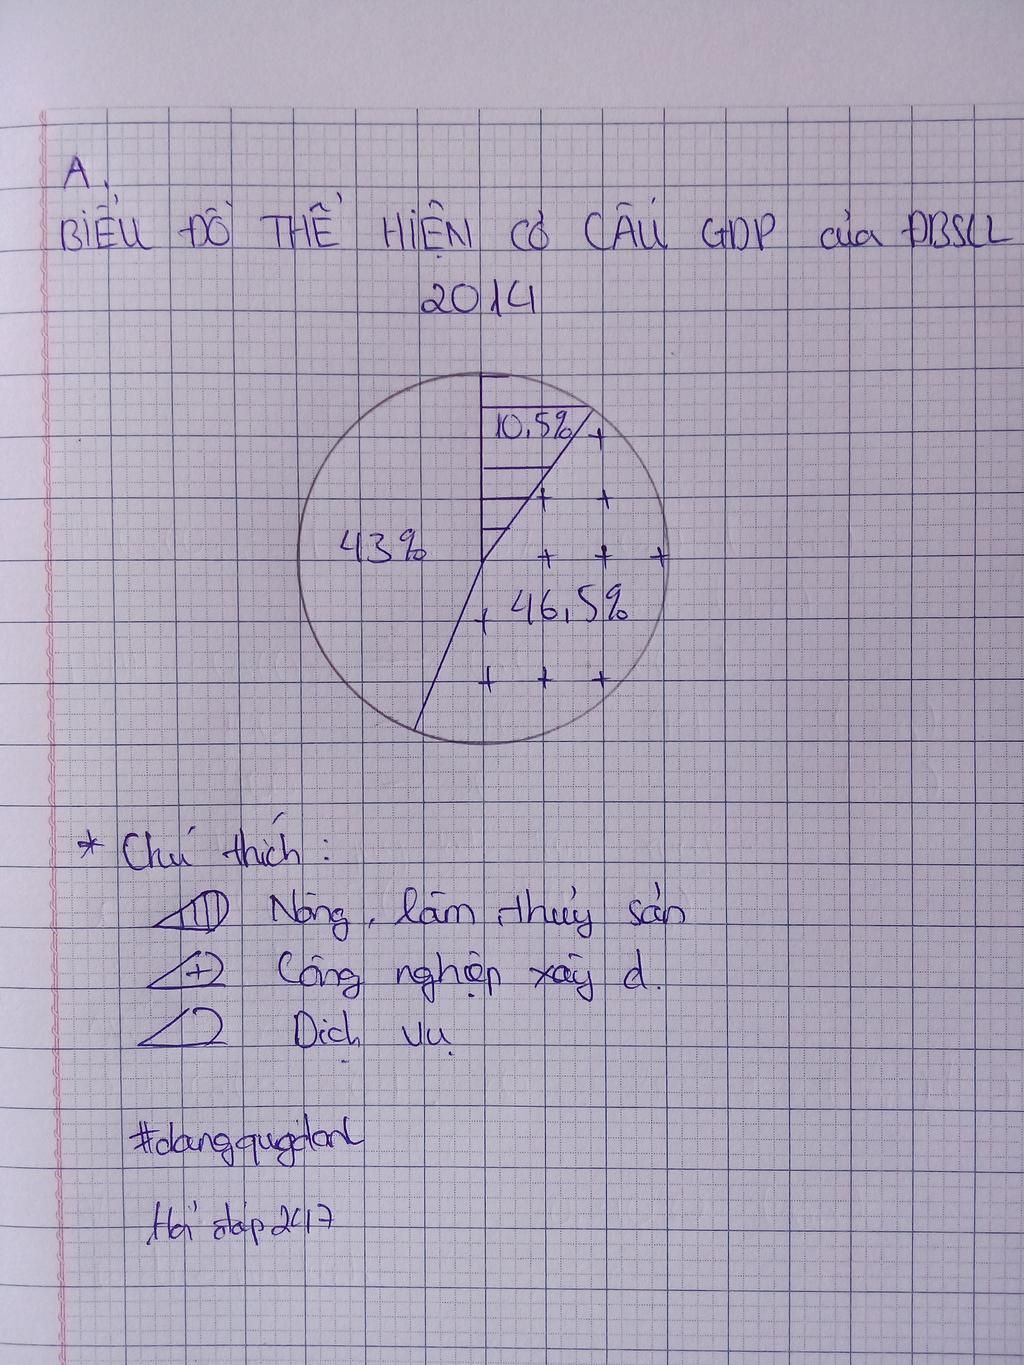 A.
BIỂU ĐỒ THỂ HIỆN CƠ CẤU GDP của ĐBSCL
2014
10,5%
43%
46,5%
* Chú thích:
Nông, lâm, thủy sản
Công nghiệp xây d.
Dịch vụ
Hỏi đáp 247